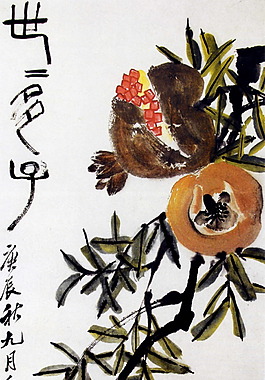 世〻多子
庚辰秋九月